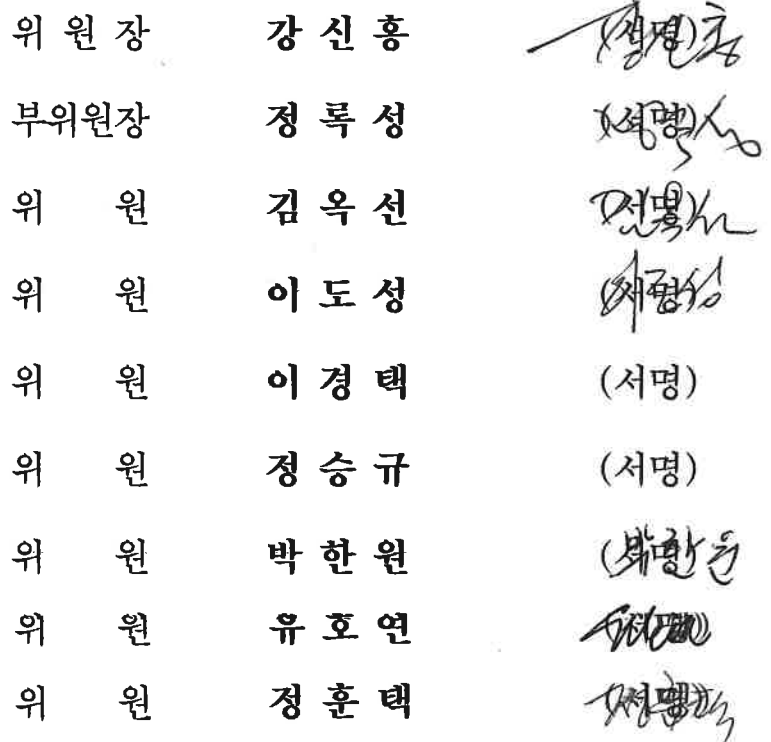 위 원 장 강 신 홍 (서명)
부위원장 정 록 성 (서명)
위 원 김 옥 선 (서명)
위 원 이 도 성 (서명)
위 원 이 경 택 (서명)
위 원 정 승 규 (서명)
위 원 박 한 원 (서명)
위 원 유 호 연 (서명)
위 원 정 훈 택 (서명)